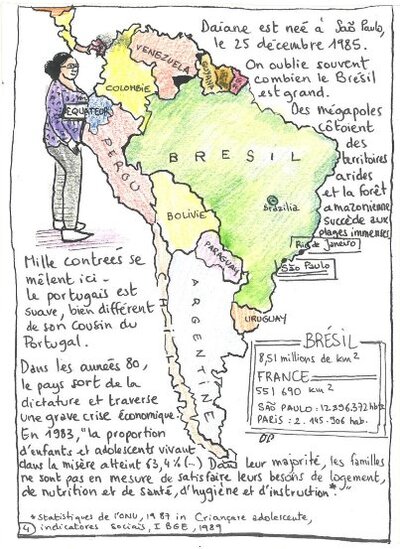 Daiane est neé à São Paulo,
le 25 décembre 1985.
On oublie souvent
combien le Brésil
est grand.
Des mégapoles
côtoient
des
territoires
arides
et la forêt
amazonienne
succède aux
plages immenses
VENEZUELA
COLOMBIE
EQUATEUR
PEROU
BRESIL
Brazilia
BOLIVIE
PARAGUAY
CHILI
ARGENTINE
URUGUAY
Rio de Janeiro
São Paulo
Mille contrées se
mêlent ici.
le portugais est
suave, bien différent
de son cousin du
Portugal.
BRÉSIL
8,51 millions de km²
FRANCE
551 690 km²
SÃO PAULO : 12 396.372 hbts
PARIS : 2.145.906 hab.
Dans les années 80,
le pays sort de la
dictature et traverse
une grave crise économique.
En 1983, "la proportion
d'enfants et adolescents vivant
dans la misère atteint 63,4% (...) Dans leur majorité, les familles
ne sont pas en mesure de satisfaire leurs besoins de logement,
de nutrition et de santé, d'hygiène et d'instruction*."
*statistiques de l'ONU, 1987 in Criançare adolescente,
indicatores sociais, IBGE, 1989
4